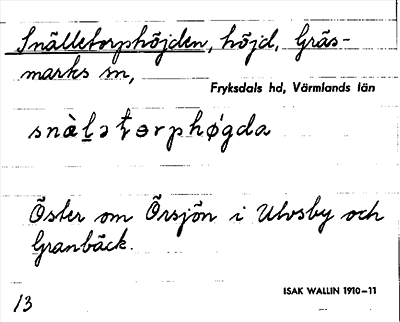 Snälletorphöjden, höjd, Gräs-
marks sn,
Fryksdals hd, Värmlands län
snàḷətərphǿgda
Öster om Örsjön i Ulvsby och
Granbäck.
ISAK WALLIN 1910–11
13